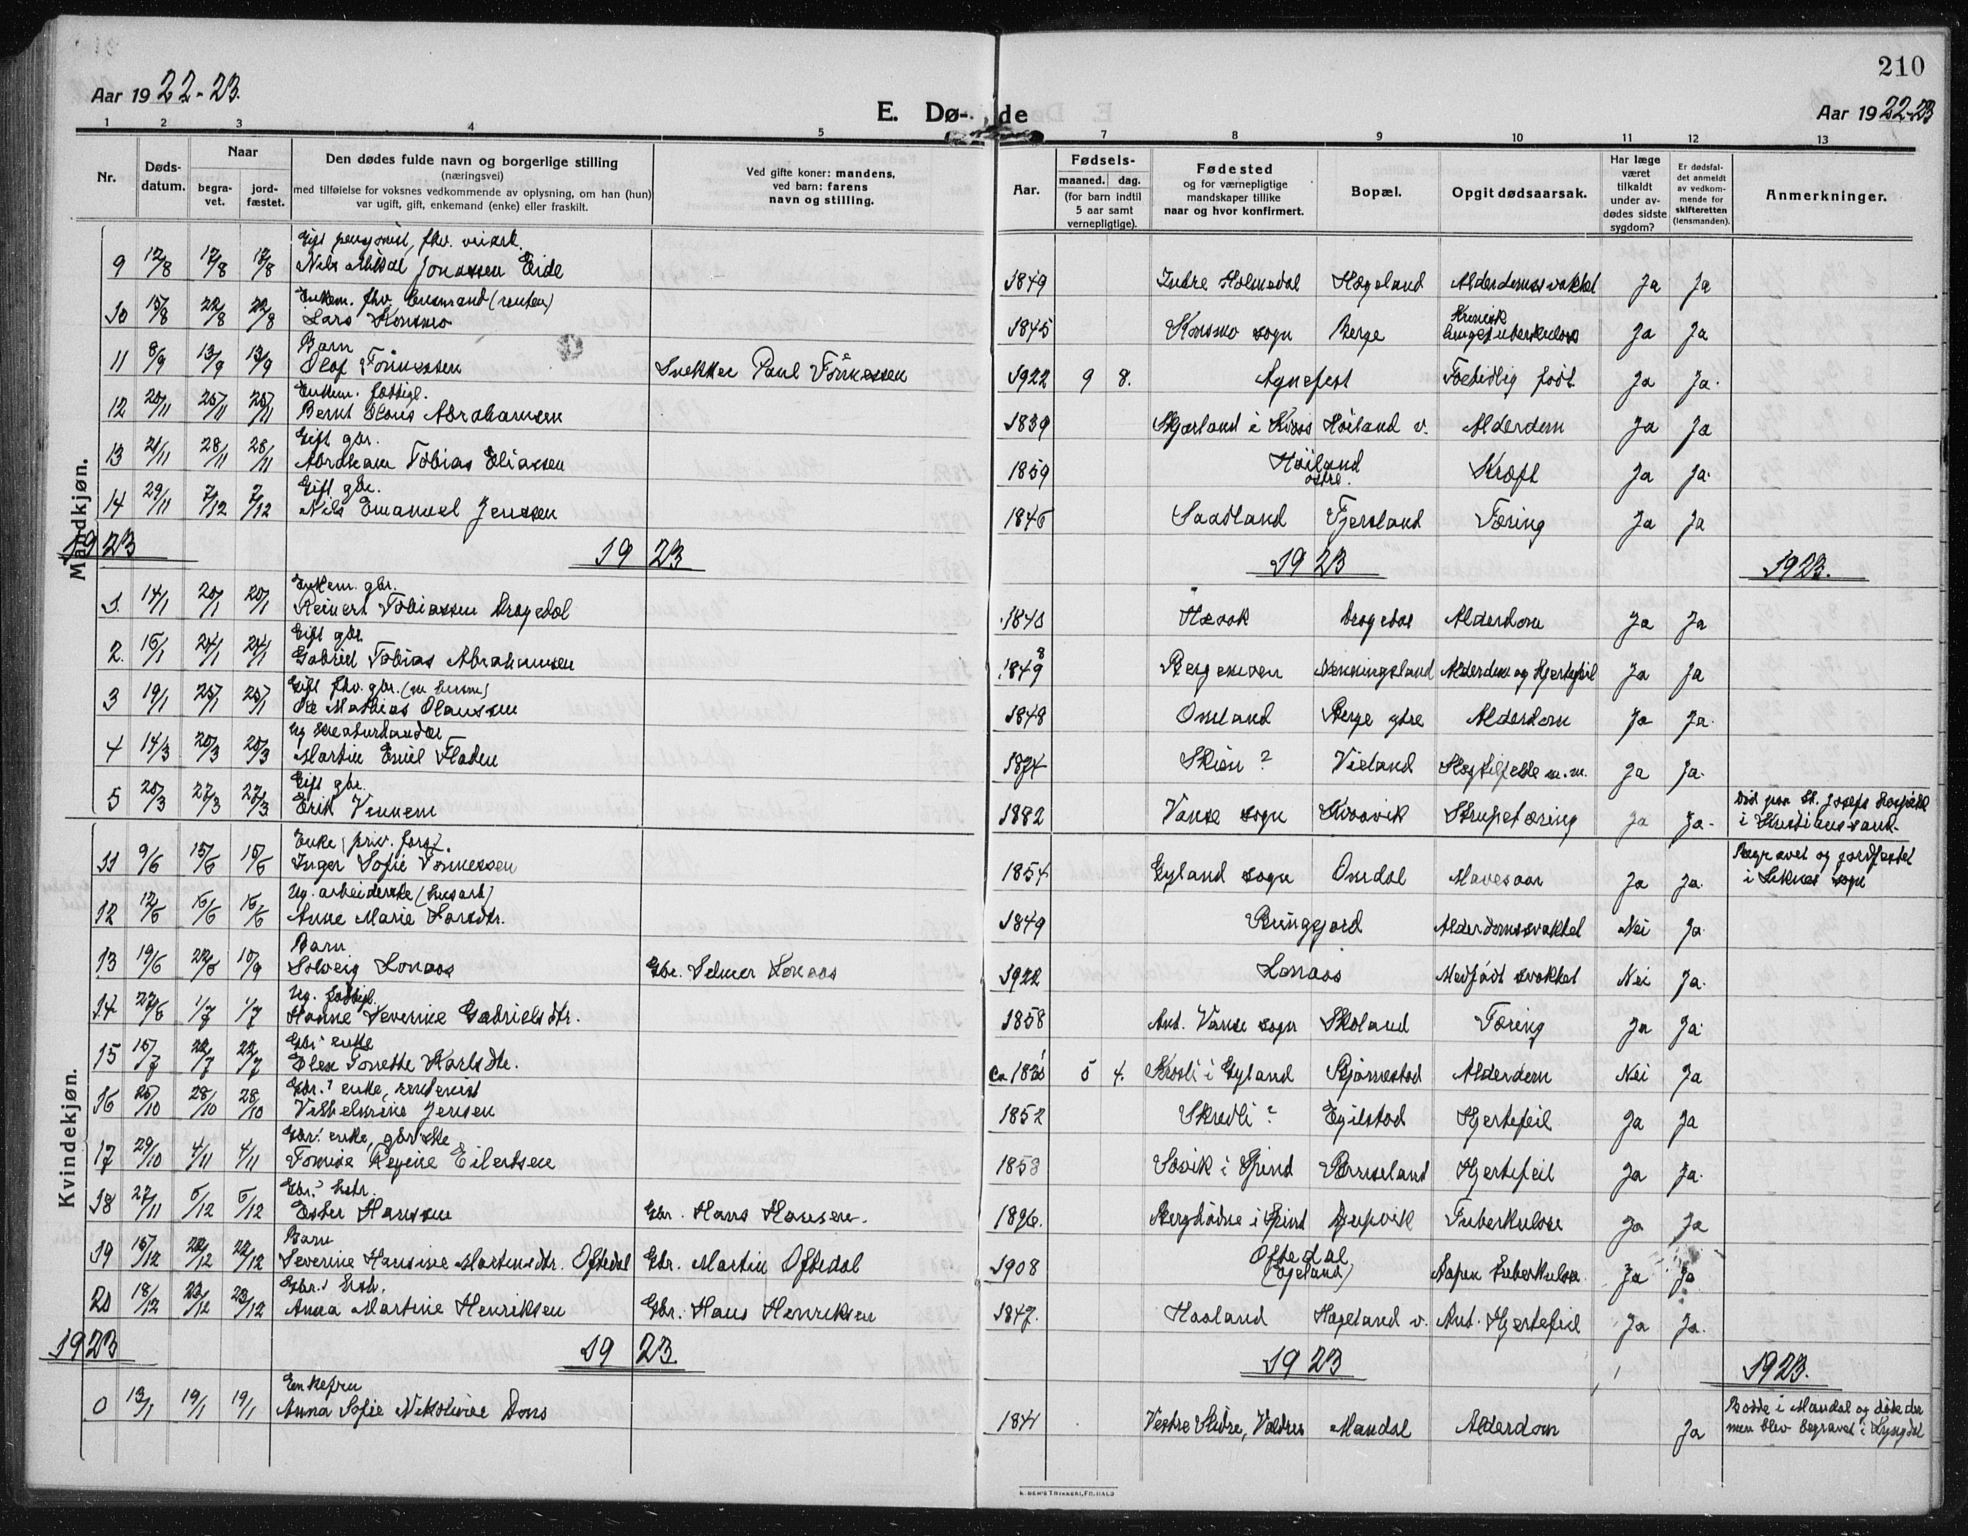 210
Aar 1922-23.
E. Dø- de
Aar 1922-23
1 2 3 4 5 7 8 9 10 11 12 13
Nr.
Døds-
datum.
Naar
begra-
vet.
jord-
fæstet.
Den dødes fulde navn og borgerlige stilling
(næringsvei)
med tilføielse for voksnes vedkommende av oplysning, om han (hun)
var ugift, gift, enkemand (enke) eller fraskilt.
Ved gifte koner: mandens,
ved barn: farens
navn og stilling.
Aar.
Fødsels-
maaned. dag.
(for barn indtil
5 aar samt
vernepligtige).
Fødested
og for værnepligtige
mandskaper tillike
naar og hvor konfirmert.
Bopæl.
Opgit dødsaarsak.
Har læge
været
tilkaldt
under av-
dødes sidste
sygdom?
Er dødsfal-
det anmeldt
av vedkom-
mende for
skifteretten
(lensmanden).
Anmerkninger.
Mandkjøn.
Gift pensjonist, fhv.
9 12/8 17/8 17/8 Nils Jonassen Eide 1849 Indre Holmedal Hægeland Alderdomssvakhet Ja Ja
Enkem. fhv. lensmand (renten)
10 15/8 22/8 22/8 Lars Konsmo 1845 Konsmo sogn Berge Kronisk lungetuberkulose Ja Ja
Barn
11 8/9 13/9 13/9 Olaf Tønnessen Snekker Paul Tønnessen 1922 9 8. Agnefest Ja Ja.
Enkem. fattigl.
12 20/11 25/11 25/11 Bernt Abrahamsen 1839 Skjærland i Kvaas Høiland v. Alderdom Ja Ja
Gift gbr.
13 21/11 28/11 28/11 Abraham Tobias Eliassen 1859 Høiland østre. Kræft Ja Ja.
Gift gbr.
14 29/11 7/12 7/12 Nils Emanuel Jenssen 1846 Saadland Fjersland Tæring Ja Ja
1923 1923 1923 1923.
Enkem. gbr.
1. 14/1 20/1 20/1 Reinert Tobiassen Dragedal Dragedal Alderdom Ja Ja
Gift gbr.
2. 15/1 24/1 24/1 Gabriel Tobias Abrahamsen 1849 8 Alderdom og Hjertefeil Ja Ja
3 19/1 25/1 25/1 Ole Mathias Olaussen 1848 Omland Berge ytre Alderdom Ja Ja.
Ug. kreaturhandler
4 14/3 20/3 20/3 Martin Emil Floden 1874 Skien? Vieland m.m. Ja Ja.
Gift gbr.
5 20/3 27/3 27/3 Erik Vennem 1882 Vanse sogn Kvaavik Strupetæring Ja Ja. Død paa St. Josefs Hospital
i Kristianssand.
Kvindekjøn.
Enke, priv. fors.
11 9/6 15/6 15/6 Inger Sofie Tønnessen 1854 Gyland sogn Omdal Mavesaar Ja Ja. Begravet og jordfæstet
i Liknes sogn
Ug. arbeiderske (husarb)
12 12/6 16/6 16/6 Anne Marie Larsdtr. 1849 Ringgjord Alderdomssvakhet Nei Ja.
Barn
13 19/6 22/6 10/9 Solveig Lonaas Gbr. Selmer Lonaas 1922 Lonaas Medfødt svakhet Nei Ja.
Ug. fattigl.
14 27/6 1/7 1/7 Hanne Severine Gabrielsdtr. 1858 Ant. Vanse sogn Skoland Tæring Ja Ja.
Gbr. enke
15 15/7 22/7 22/7 Elen Tonette Karlsdtr. 5 4. Kvosli i Gyland Bjørnestad Alderdom Nei Ja
Gbr.? enke,
16 25/10 28/10 28/10 Vilhelmine Jensen 1852 Skredli? Egilstad Hjertefeil Ja Ja
Gbr. enke, gbrske
17 29/10 4/11 4/11 Tomine Regine Eilertsen 1853 i Spind Hjertefeil Ja Ja.
Gbr.? hstr.
18 27/11 5/12 5/12 Ester Hanssen Gbr. Hans Hansen. 1896. i Spind Djupvik Tuberkulose Ja Ja
Barn
19 15/12 22/12 22/12 Severine Hansine Martinsdtr. Oftedal Gbr. Martin Oftedal 1908 Oftedal (Egeland) Aapen tuberkulose Ja Ja
Gbr.? hstr.
20 18/12 23/12 23/12 Anna Martine Henriksen Gbr. Hans Henriksen 1847. Haaland Hægeland v. Ant. Hjertefeil Ja Ja.
1923 1923 1923 1923.
Enkefru
0 13/1 19/1 19/1 Anna Sofie Nikolivie Dons 1841 Vestre Slidre, Valdres Mandal Alderdom Ja Bodde i Mandal og døde der
men blev begravet i Lyngdal